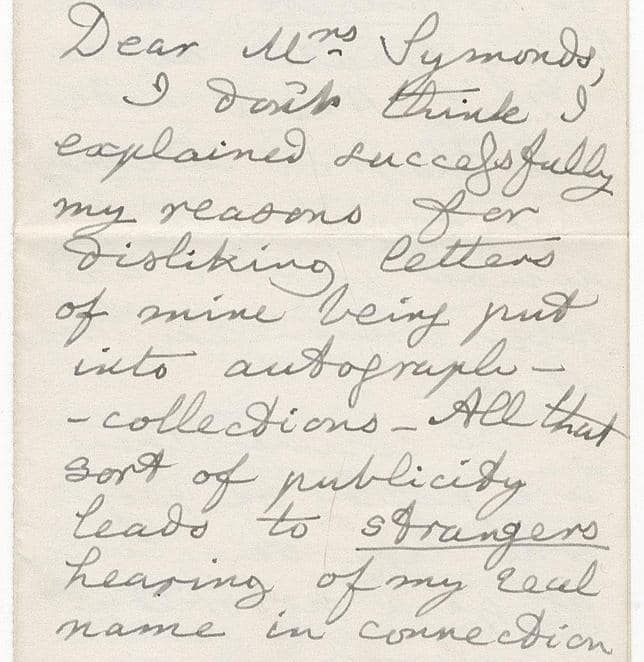 Dear Mrs Symonds,
I don't think I
explained successfully
my reasons for
disliking letters
of mine being put
into autograph-
-collections - All that
sort of publicity
leads to strangers
hearing of my real
name in connection